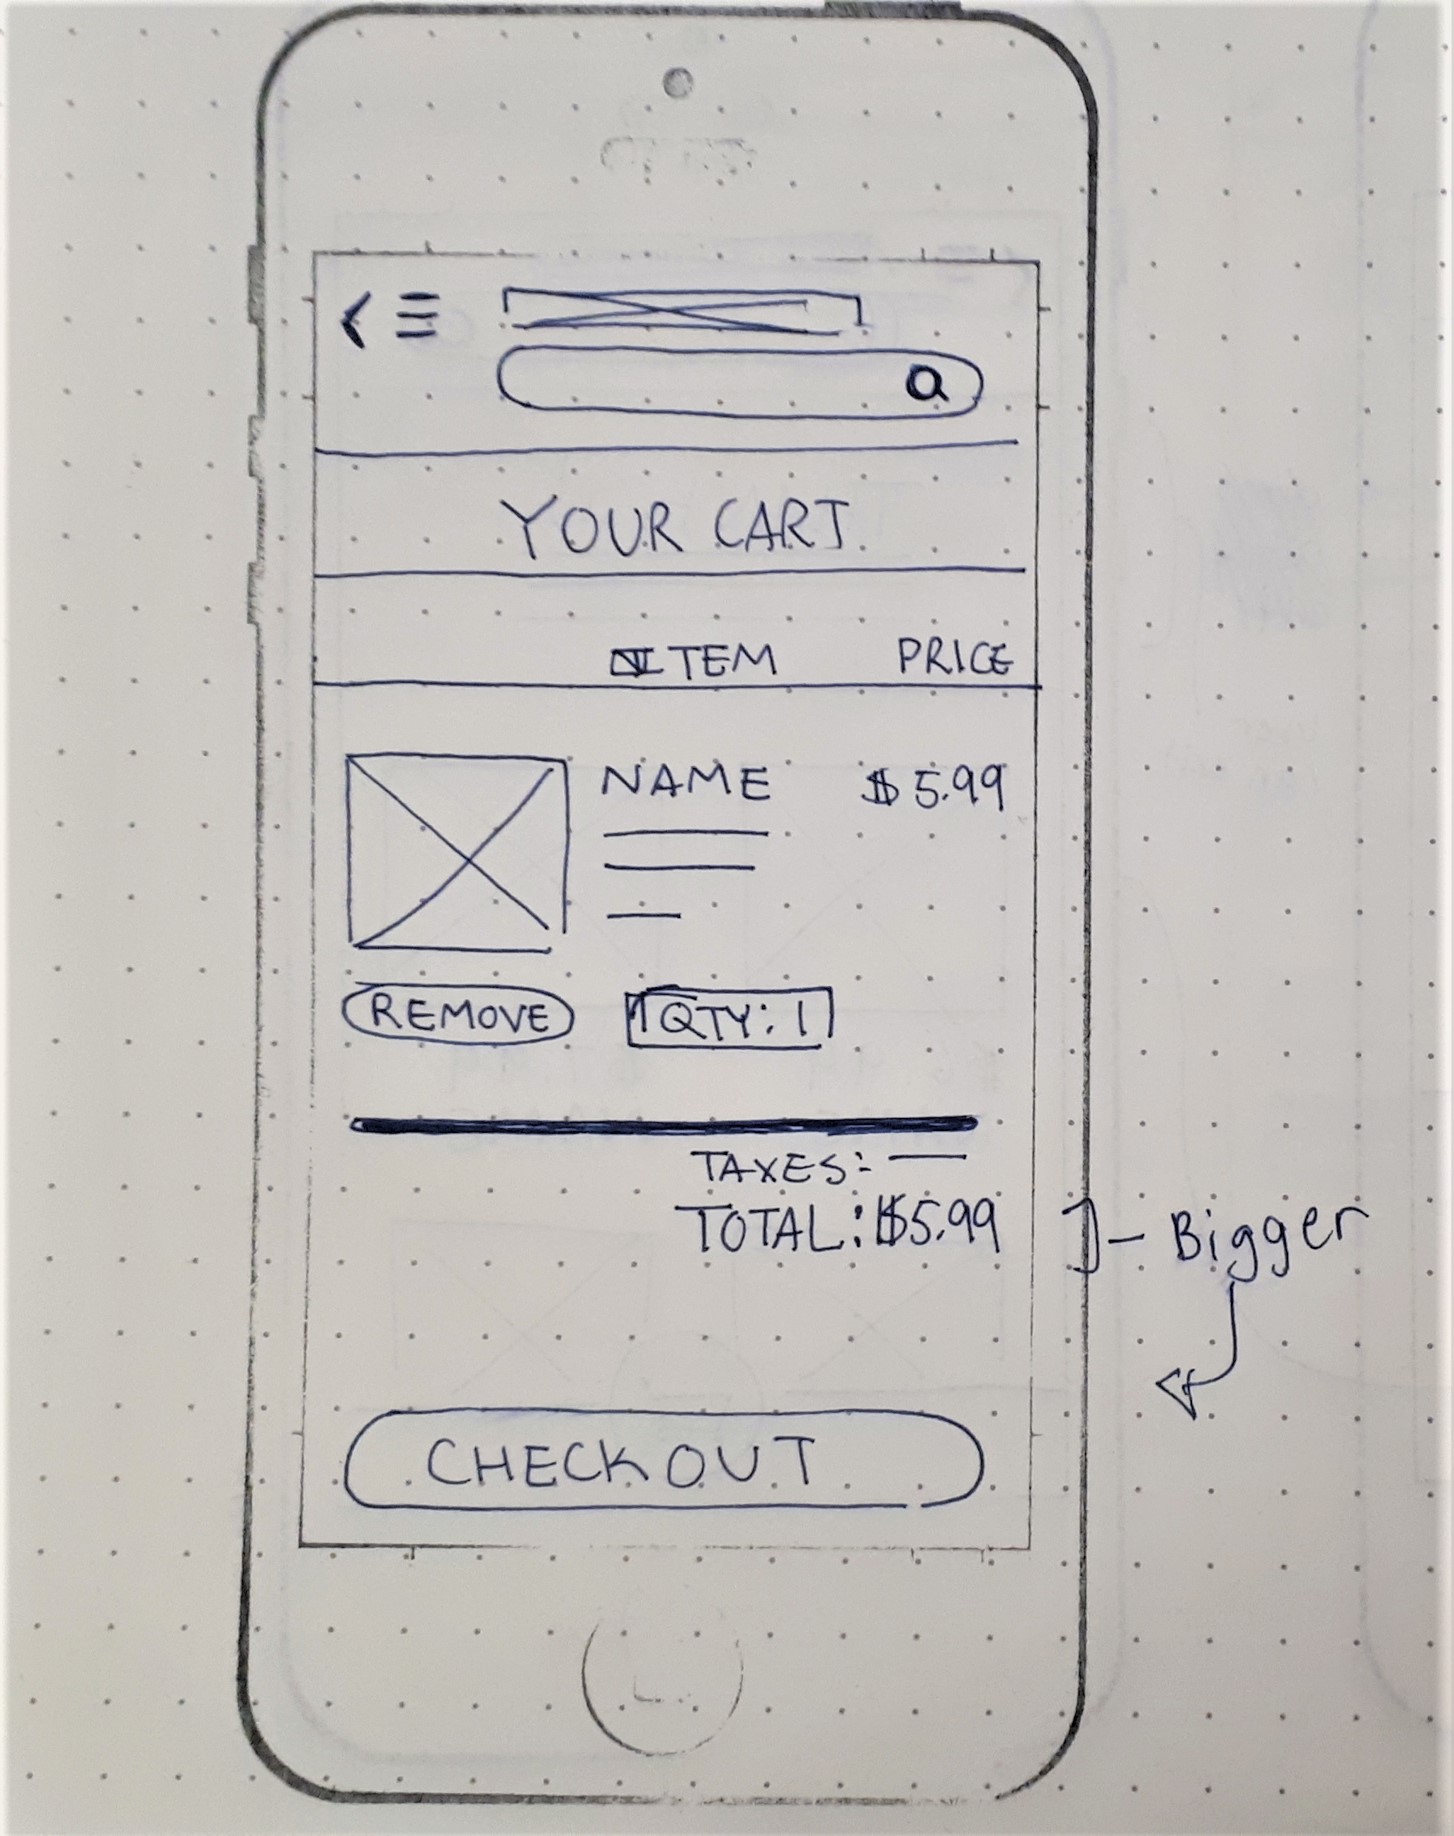 YOUR CART
ITEM PRICE
NAME $5.99
REMOVE QTY: 1
TAXES:
TOTAL: $5.99
Bigger
CHECKOUT